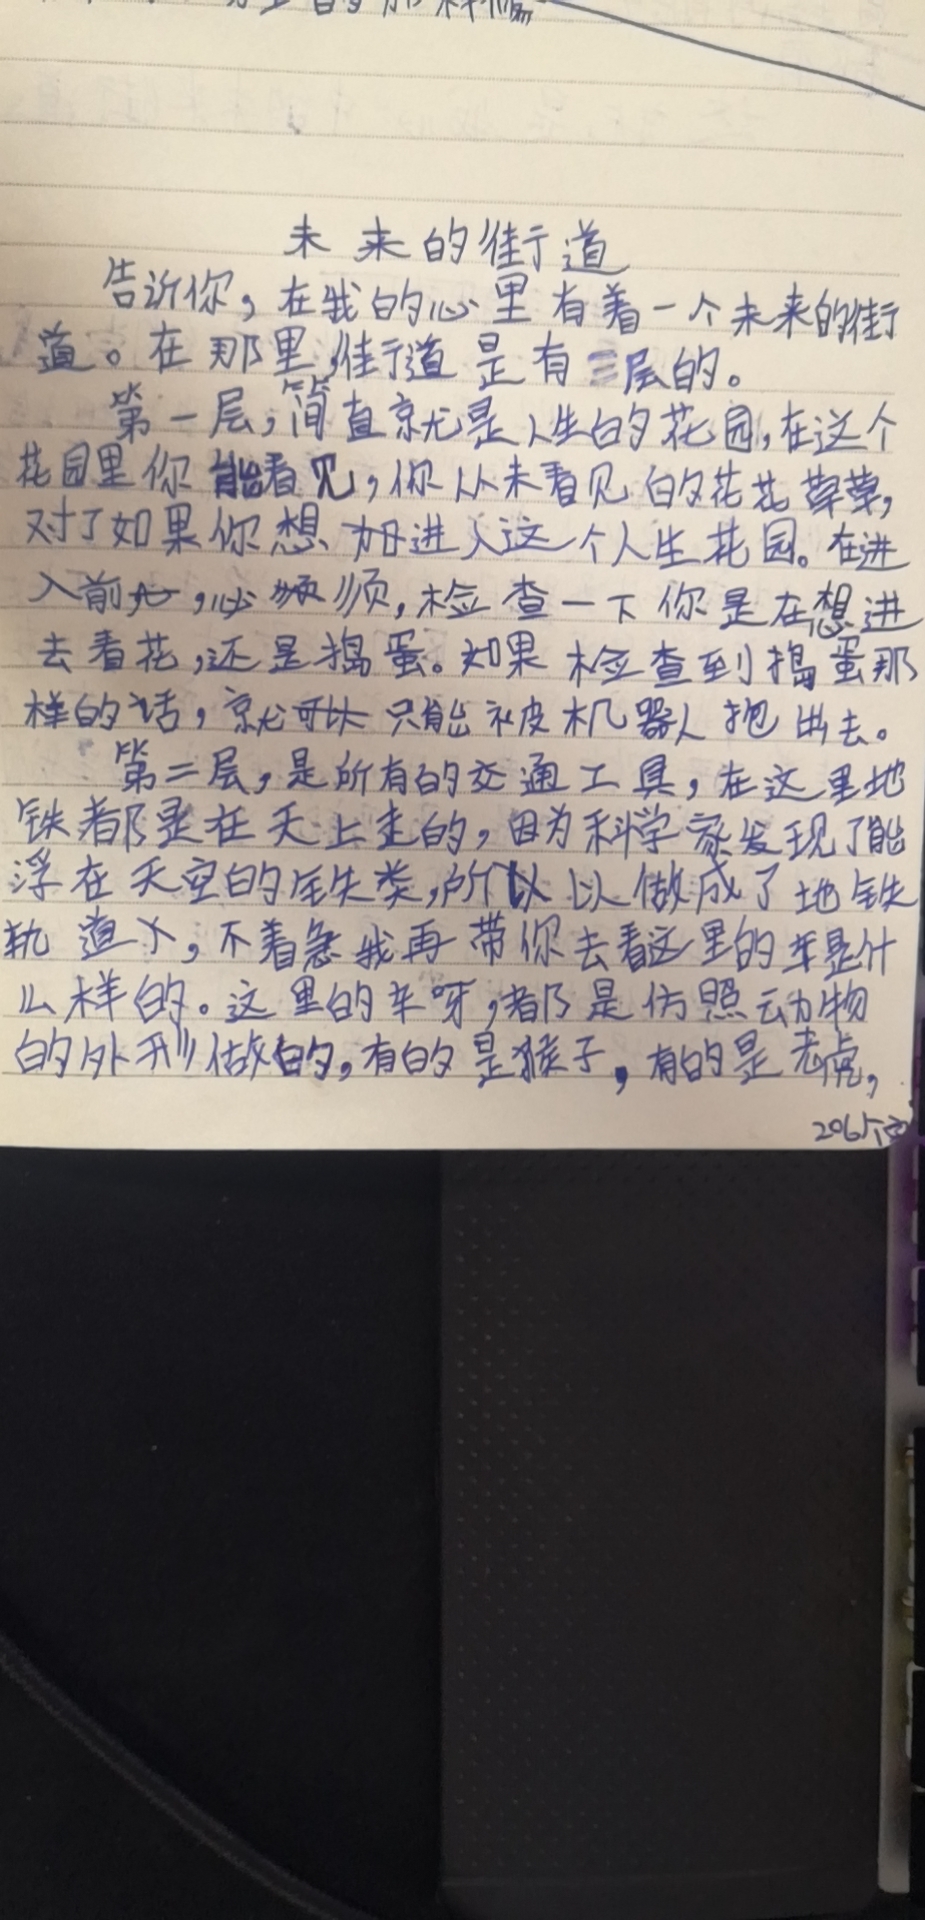 未来的街道
告诉你，在我的心里有着一个未来的街
道。在那里，街道是有三层的。
第一层，简直就是人生的花园，在这个
花园里你能看见，你从未看见的花花草草，
对了如果你想进入这个人生花园。在进
入前，必须，检查一下你是在想进
去看花，还是捣蛋。如果检查到捣蛋那
样的话，就只能被机器人抱出去。
第二层，是所有的交通工具，在这里地
铁都是在天上走的，因为科学家发现了能
浮在天空的铁类，所以以做成了地铁
轨道，不着急我再带你去看这里的车是什
么样的。这里的车呀，都是仿照动物
的外形做的，有的是猴子，有的是老虎，
206个字